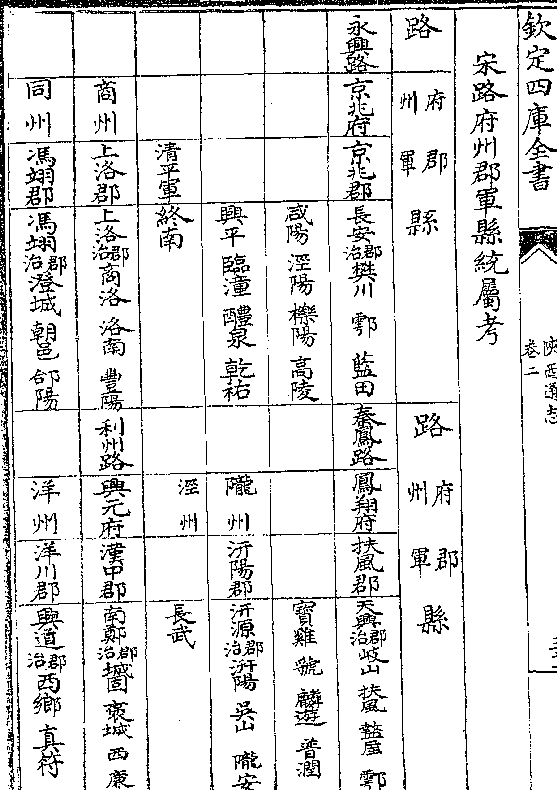 欽定四庫全書
陝西通志
卷二
宋路府州郡軍縣統屬考
路 府州 郡軍 縣 路 府州 郡軍 縣
永興路 京兆府 京兆郡 長安郡治 樊川 鄠 藍田 秦鳳路 鳳翔府 扶風郡 天興郡治 岐山 扶風 盩厔 鄠
咸陽 涇陽 櫟陽 高陵 寶雞 虢 麟遊 普潤
興平 臨潼 醴泉 乾祐 隴州 汧陽郡 汧源郡治 汧陽 吳山 隴安
清平軍 終南 涇州 長武
商州 上洛郡 上洛郡治 商洛 洛南 豐陽 利州路 興元府 漢中郡 南鄭郡治 城固 褒城 西 廉
同州 馮翊郡 馮翊郡治 澄城 朝邑 郃陽 洋州 洋川郡 興道郡治 西鄉 真符